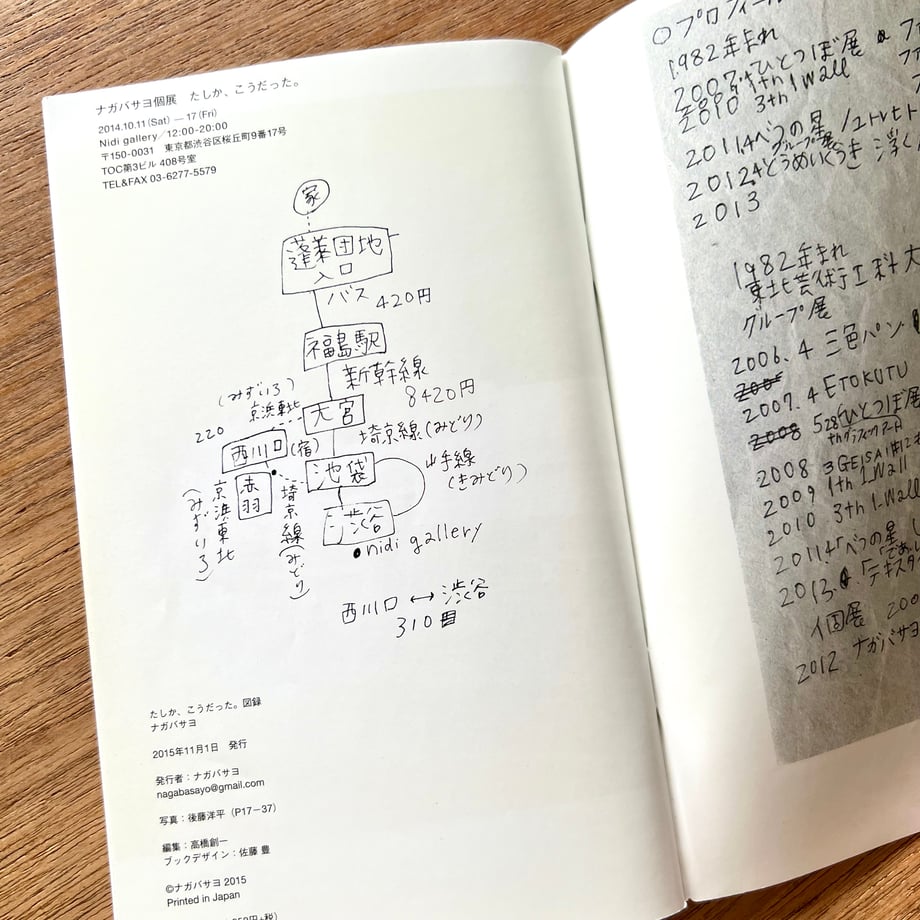 ナガバサヨ個展　たしか、こうだった。
2014.10.11(Sat) — 17(Fri)
Nidi gallery／12:00-20:00
〒150-0031　東京都渋谷区桜丘町9番17号
TOC第3ビル 408号室
TEL&FAX 03-6277-5579
家
蓬莱団地
入口
バス 420円
福島駅
新幹線
8420円
(みずいろ)
京浜東北
大宮
220
埼京線(みどり)
西川口
(宿)
池袋
山手線
(きみどり)
赤羽
京浜東北
(みずいろ)
埼京線(みどり)
渋谷
nidi gallery
西川口 ↔ 渋谷
310
たしか、こうだった。図録
ナガバサヨ
2015年11月1日　発行
発行者：ナガバサヨ
nagabasayo@gmail.com
写真：後藤洋平（P17－37）
編集：高橋創一
ブックデザイン：佐藤 豊
©ナガバサヨ 2015
Printed in Japan
〇プロフィール
1982年生まれ
2007 ひとつぼ展
2010 3th 1Wall
2011 4べつの星
グループ展
2012 4どうめいくうき
2013
1982年生まれ
東北芸術工科大
グループ展
2006.4 三色パン
2007.4 ETOKUTU
2008 528ひとつぼ展
2008 3GEISAI
2009 1th 1Wall
2010 3th 1-Wall
2011 4「べつの星
2013.
個展
2012 ナガバサヨ